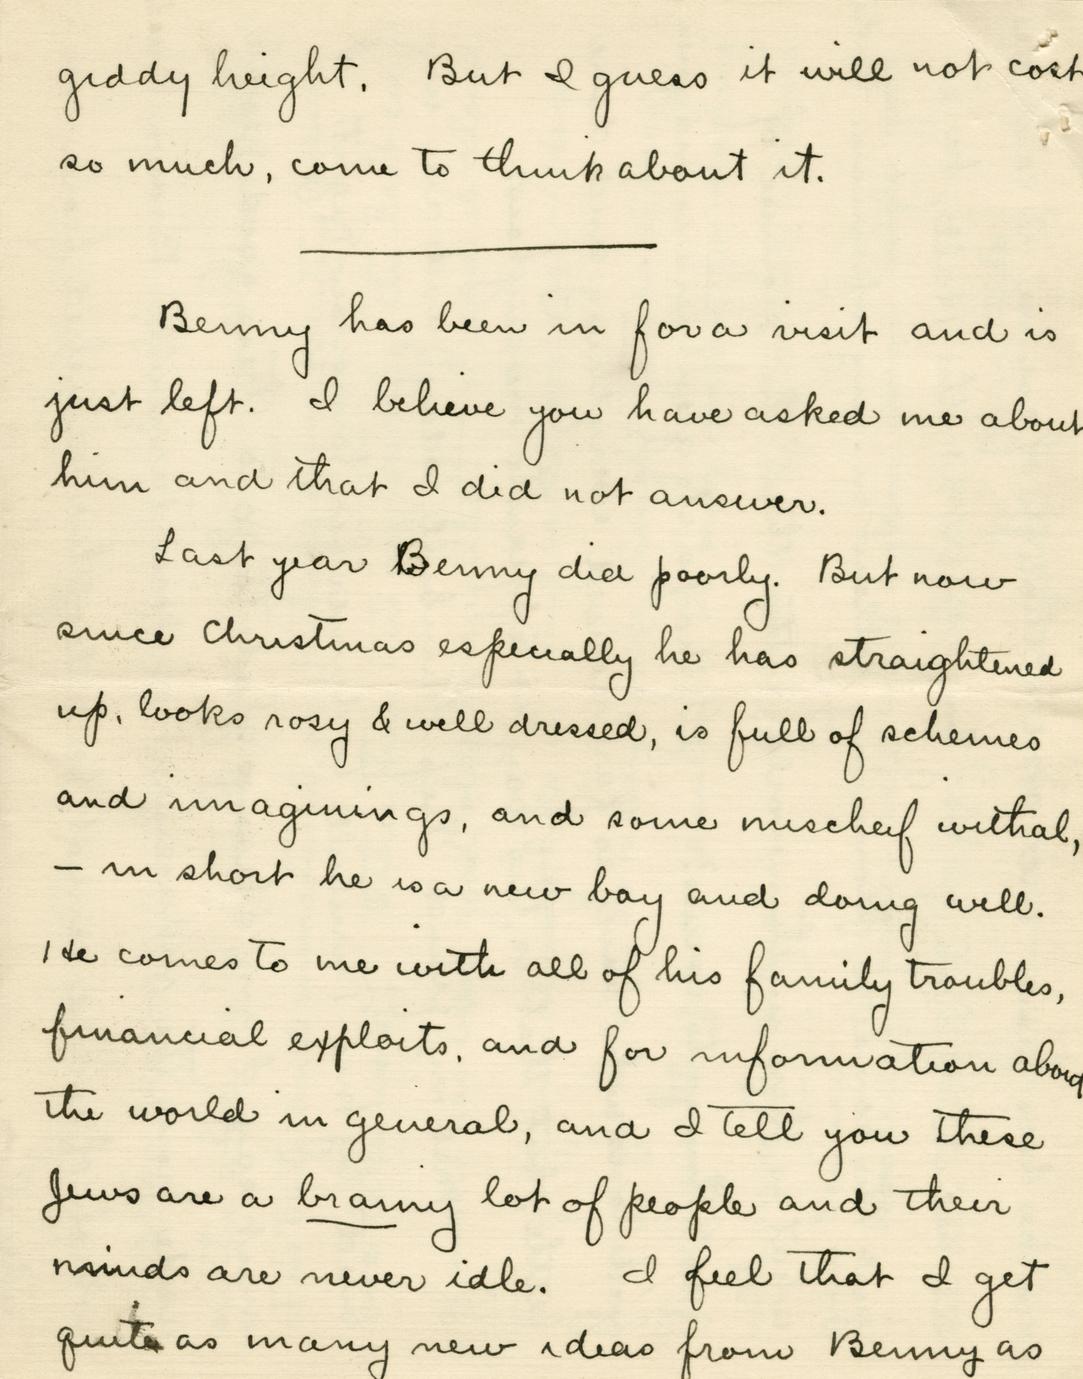 giddy height. But I guess it will not cost
so much, come to think about it.
Benny has been in for a visit and is
just left. I believe you have asked me about
him and that I did not answer.
Last year Benny did poorly. But now
since Christmas especially he has straightened
up, looks rosy & well dressed, is full of schemes
and imaginings, and some mischeif withal,
– in short he is a new boy and doing well.
He comes to me with all of his family troubles,
financial exploits, and for information about
the world in general, and I tell you these
Jews are a brainy lot of people and their
minds are never idle. I feel that I get
quite as many new ideas from Benny as